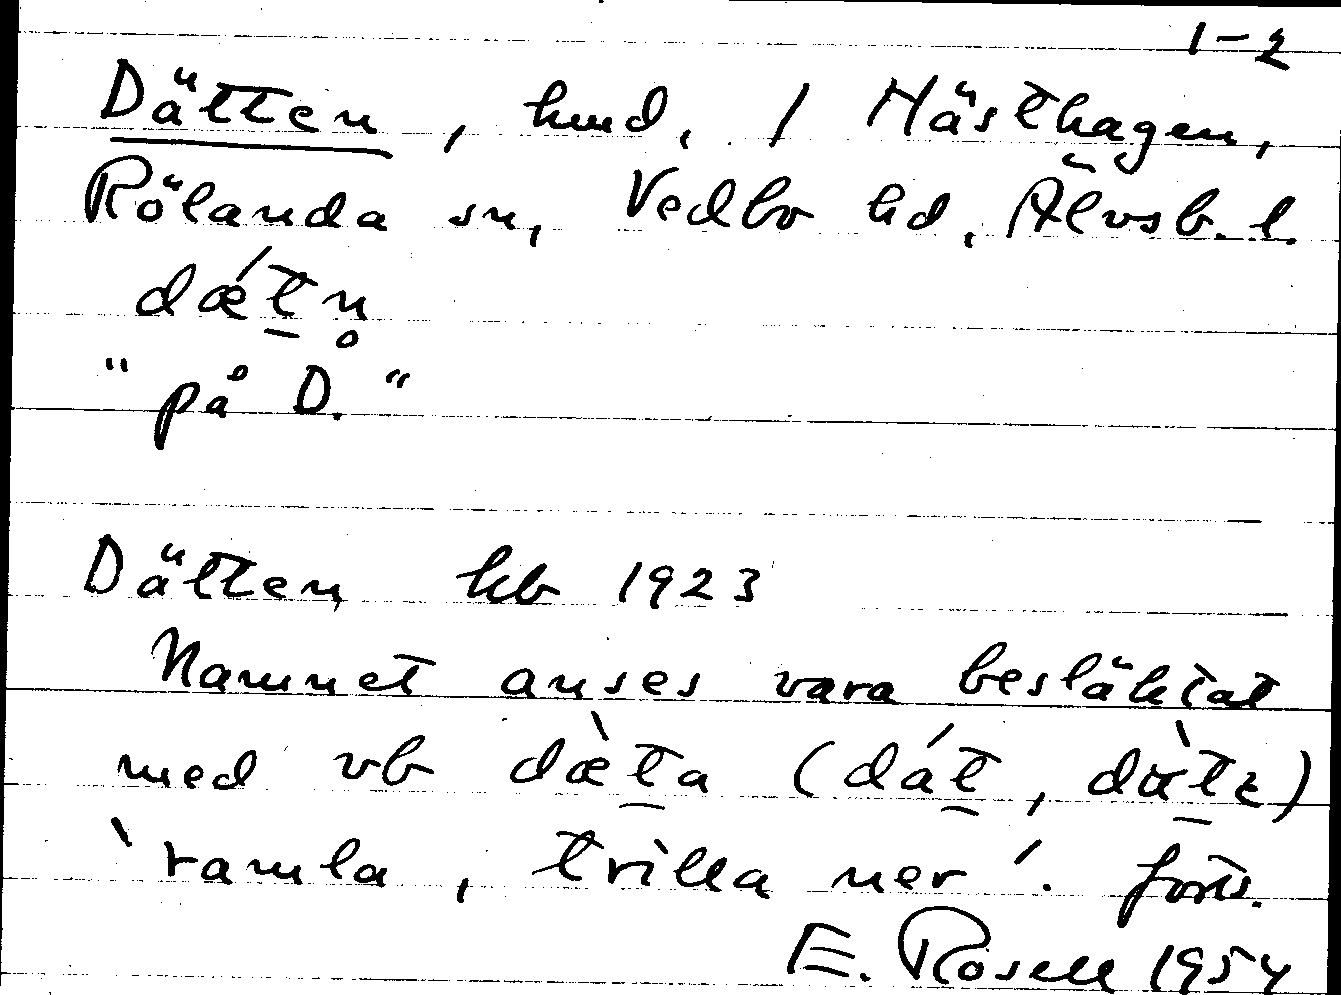 1-2
Dätten, hmd, / Hästhagen,
Rölanda sn, Vedbo hd, Älvsb. l.
dǽt̠n̥
"på D."
Dätten hb 1923
Namnet anses vara besläktat
med vb dæ̀t̠a (dát̠, dàt̠ε)
`ramla, trilla ner´. forts.
E. Rosell 1954